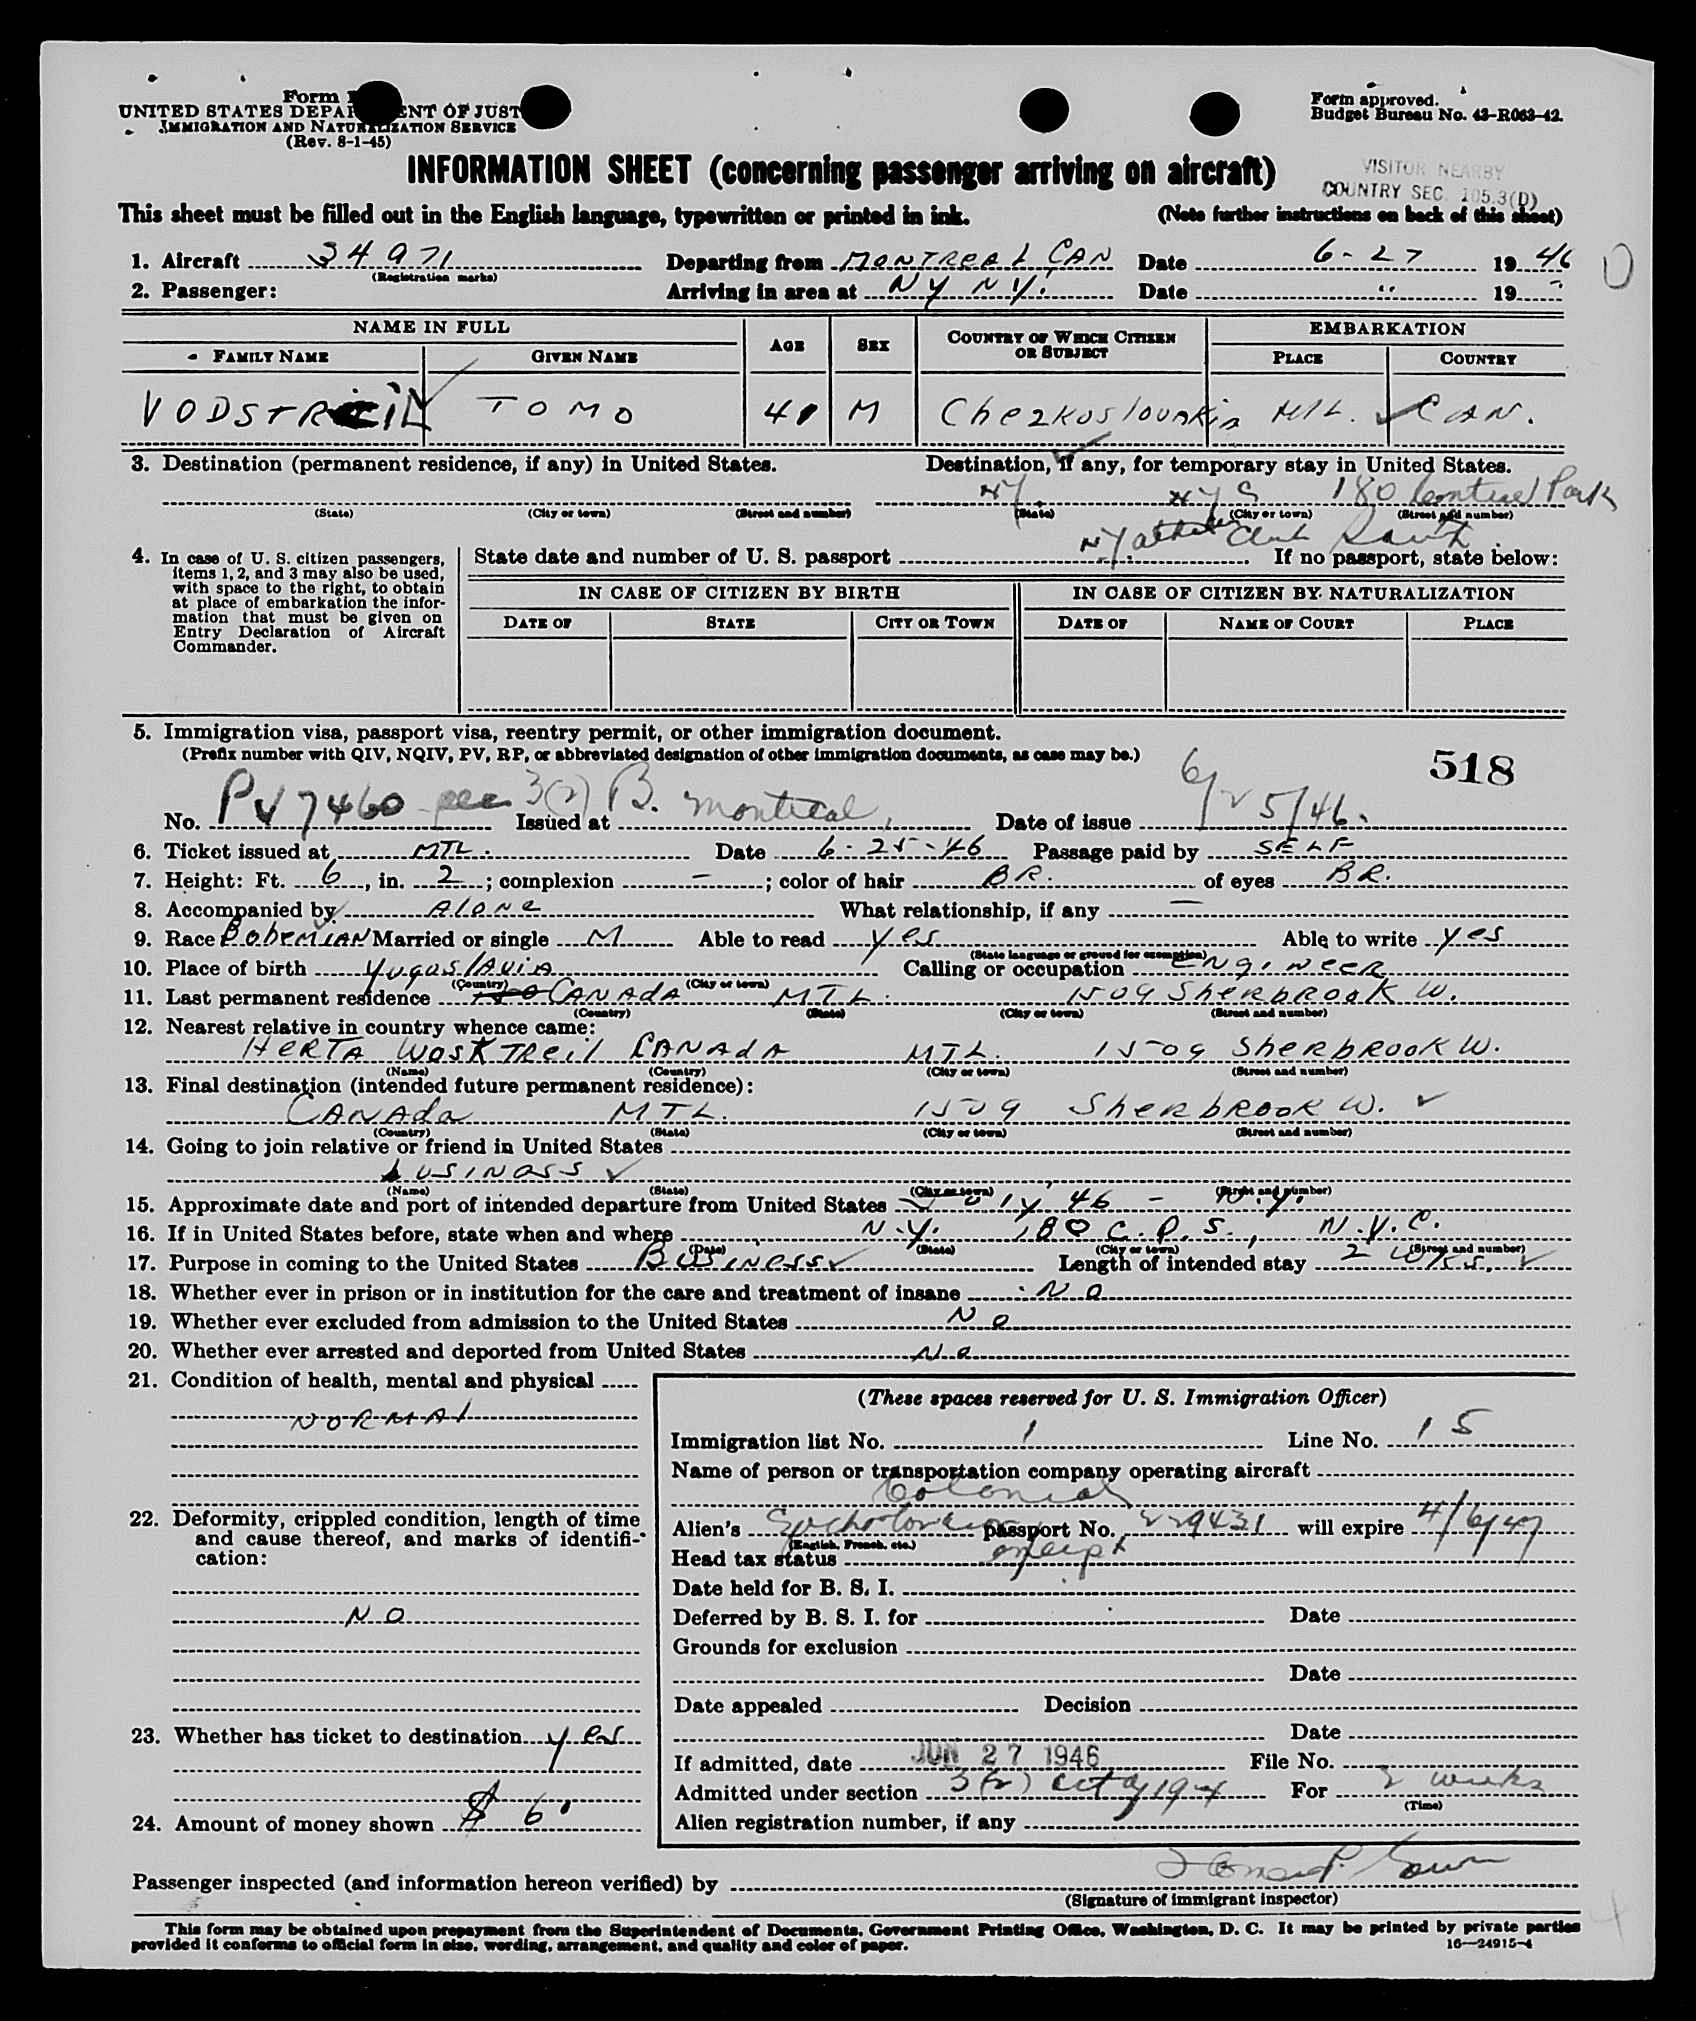 Form
UNITED STATES DEPARTMENT OF JUST
IMMIGRATION AND NATURALIZATION SERVICE
(Rev. 8-1-45)
Form approved.
Budget Bureau No. 43-R063-42.
INFORMATION SHEET (concerning passenger arriving on aircraft)
VISITOR NEARBY
COUNTRY SEC. 105.3(D)
This sheet must be filled out in the English language, typewritten or printed in ink. (Note further instructions on back of this sheet)
1. Aircraft 34971 Departing from MONTREAL CAN Date 6-27 1946
(Registration marks)
2. Passenger: Arriving in area at NY NY. Date " 19 "
NAME IN FULL AGE SEX COUNTRY OF WHICH CITIZEN OR SUBJECT EMBARKATION
FAMILY NAME GIVEN NAME PLACE COUNTRY
VODSTRCIL TOMO 41 M Chezkoslovakia MTL. CAN.
3. Destination (permanent residence, if any) in United States. Destination, if any, for temporary stay in United States.
NY. NYC 180 Central Park
(State) (City or town) (Street and number) (State) (City or town) (Street and number)
NY Athletic Club South
4. In case of U. S. citizen passengers, items 1, 2, and 3 may also be used, with space to the right, to obtain at place of embarkation the information that must be given on Entry Declaration of Aircraft Commander.
State date and number of U. S. passport If no passport, state below:
IN CASE OF CITIZEN BY BIRTH IN CASE OF CITIZEN BY NATURALIZATION
DATE OF STATE CITY OR TOWN DATE OF NAME OF COURT PLACE
5. Immigration visa, passport visa, reentry permit, or other immigration document.
(Prefix number with QIV, NQIV, PV, RP, or abbreviated designation of other immigration documents, as case may be.)
518
No. PV 7460 3(2) B. Issued at Montreal, Date of issue 6/25/46.
6. Ticket issued at MTL. Date 6-25-46 Passage paid by SELF
7. Height: Ft. 6, in. 2; complexion –; color of hair BR. of eyes BR.
8. Accompanied by Alone What relationship, if any —
9. Race Bohemian Married or single M Able to read yes Able to write yes
(State language or ground for exemption)
10. Place of birth Yugoslavia Calling or occupation ENGINEER
(Country) (City or town)
11. Last permanent residence CANADA MTL. 1509 SherbRooK W.
(Country) (State) (City or town) (Street and number)
12. Nearest relative in country whence came:
HERTA WOSKTREIL CANADA MTL. 1509 SherbRooK W.
(Name) (Country) (City or town) (Street and number)
13. Final destination (intended future permanent residence):
CANAda MTL. 1509 SherbRooK W.
(Country) (State) (City or town) (Street and number)
14. Going to join relative or friend in United States
business
(Name) (State) (City or town) (Street and number)
15. Approximate date and port of intended departure from United States July 46 – N.Y.
16. If in United States before, state when and where N.Y. 180 C.P.S., N.Y.C.
(Date) (State) (City or town) (Street and number)
17. Purpose in coming to the United States Business Length of intended stay 2 WKS.
18. Whether ever in prison or in institution for the care and treatment of insane No
19. Whether ever excluded from admission to the United States No
20. Whether ever arrested and deported from United States No
21. Condition of health, mental and physical
NORMAl
22. Deformity, crippled condition, length of time and cause thereof, and marks of identification:
NO
23. Whether has ticket to destination yes
24. Amount of money shown $ 6.
(These spaces reserved for U. S. Immigration Officer)
Immigration list No. 1 Line No. 15
Name of person or transportation company operating aircraft
Colonial
Alien's passport No. 229431 will expire 4/6/47
(English, French, etc.)
Head tax status exempt
Date held for B. S. I.
Deferred by B. S. I. for Date
Grounds for exclusion
Date
Date appealed Decision
Date
If admitted, date JUN 27 1946 File No.
Admitted under section 3(2) act of 1924 For 2 weeks
(Time)
Alien registration number, if any
Passenger inspected (and information hereon verified) by
(Signature of immigrant inspector)
This form may be obtained upon prepayment from the Superintendent of Documents, Government Printing Office, Washington, D. C. It may be printed by private parties
provided it conforms to official form in size, wording, arrangement, and quality and color of paper.
16—24915-4